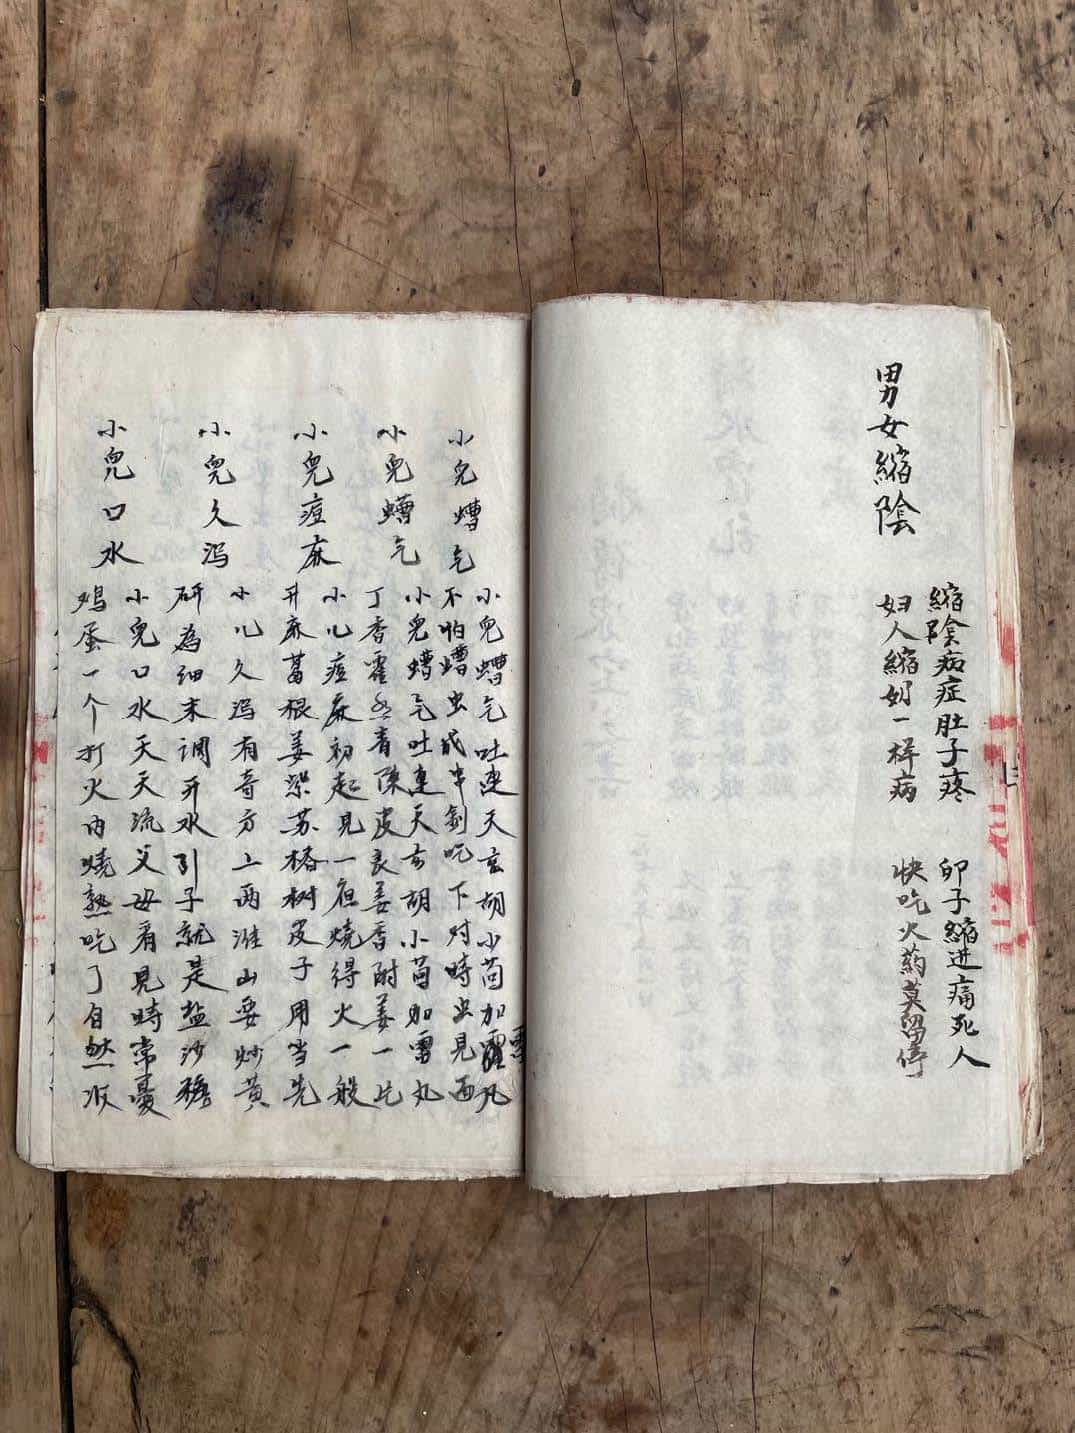 男女縮陰
縮陰病症肚子疼
卵子縮进痛死人
妇人縮奶一样病
快吃火药莫留停
小兒螬气
小兒螬气吐連天玄胡小茴加雷丸
不怕螬虫成串剑吃下对時虫見面
小兒螬气
小兒螬气吐連天玄胡小茴加雷丸
丁香霍香青陳皮良姜香附姜一片
小兒痘麻
小儿痘麻初起見一夜燒得火一般
升麻葛根姜紫苏椿树皮子用当先
小兒久泻
小儿久泻有奇方二两淮山要炒黄
研為细末调开水引子就是盐沙糖
小兒口水
小兒口水天天流父母看見時常憂
鸡蛋一个打火内燒熟吃了自然